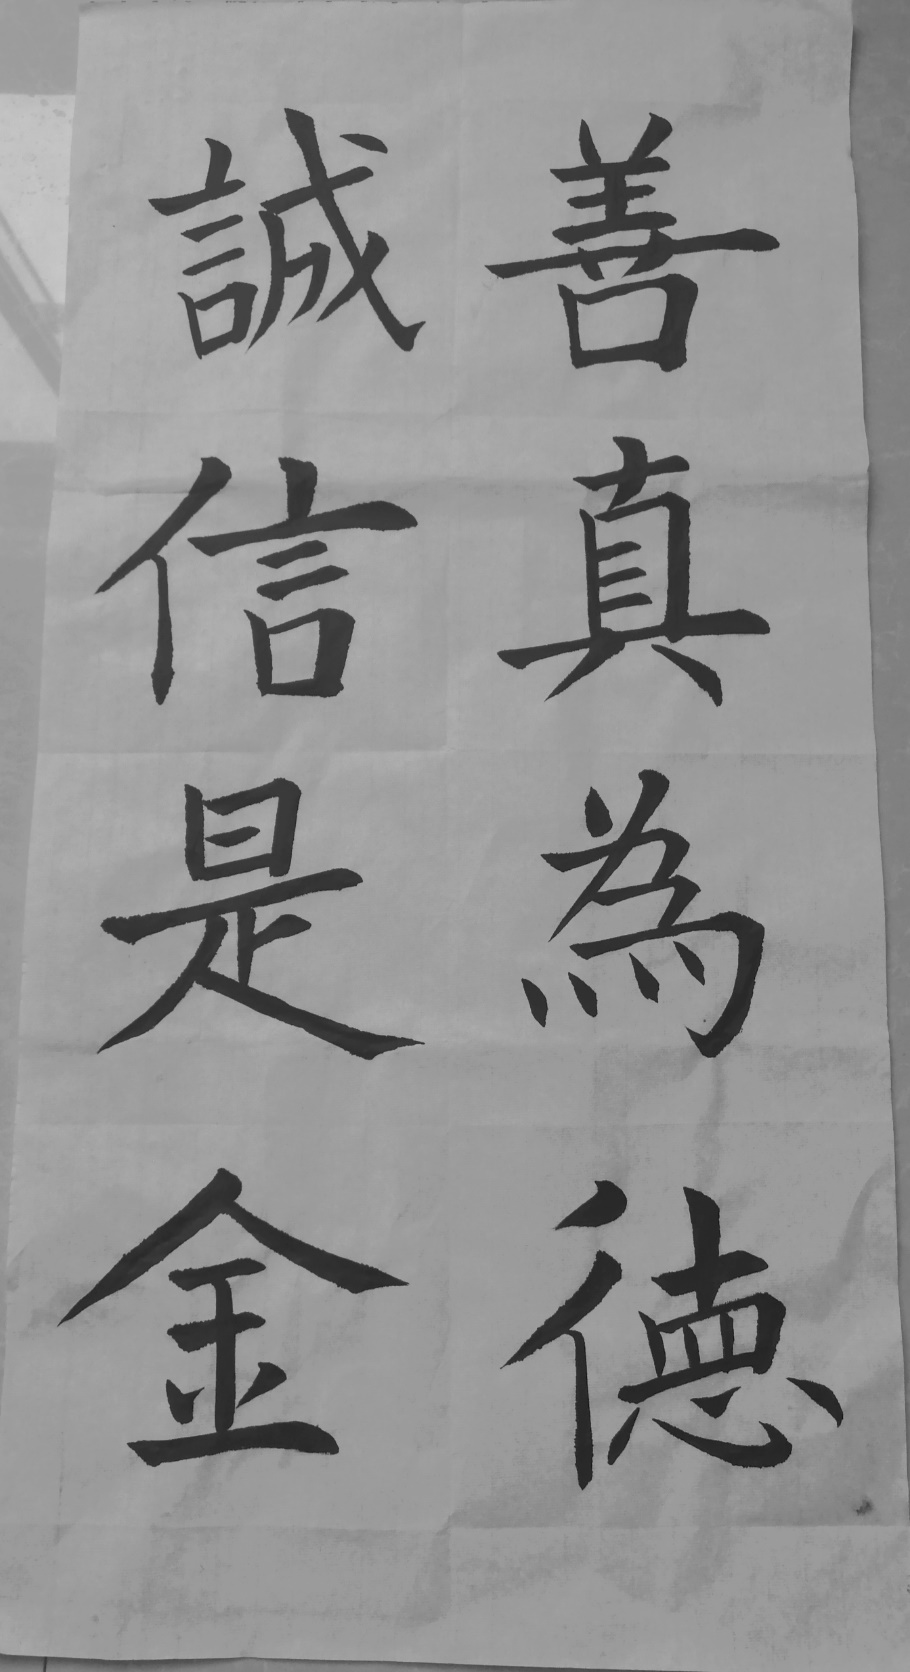 善真為德
誠信是金